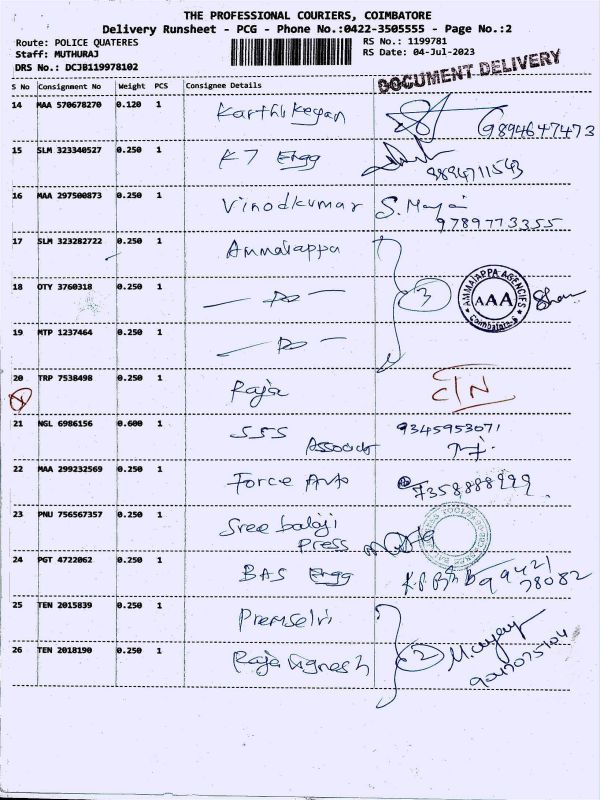 THE PROFESSIONAL COURIERS, COIMBATORE
Delivery Runsheet - PCG - Phone No.:0422-3505555 - Page No.:2
Route: POLICE QUATERES
RS No.: 1199781
Staff: MUTHURAJ
RS Date: 04-Jul-2023
DRS No.: DCJB119978102
DOCUMENT DELIVERY
S No Consignment No Weight PCS Consignee Details
14 MAA 570678270 0.120 1 Karthikeyan 9894647473
15 SLM 323340527 0.250 1 K7 Engg 9894711543
16 MAA 297500873 0.250 1 Vinodkumar S. 9789773355
17 SLM 323282722 0.250 1 Ammaiappa
18 OTY 3760318 0.250 1 — Do — 3
AMMAIAPPA AGENCIES
AAA
Coimbatore-6
19 MTP 1237464 0.250 1 — Do —
20 TRP 7538498 0.250 1 Raja C/N
21 NGL 6986156 0.600 1 SSS 9345953071
Associat
22 MAA 299232569 0.250 1 Force Auto 7358888999
23 PNU 756567357 0.250 1 Sree balaji
Press
24 PGT 4722062 0.250 1 BAS Engg 99421
78082
25 TEN 2015839 0.250 1 Premselvi
26 TEN 2018190 0.250 1 Raja Vignesh 2